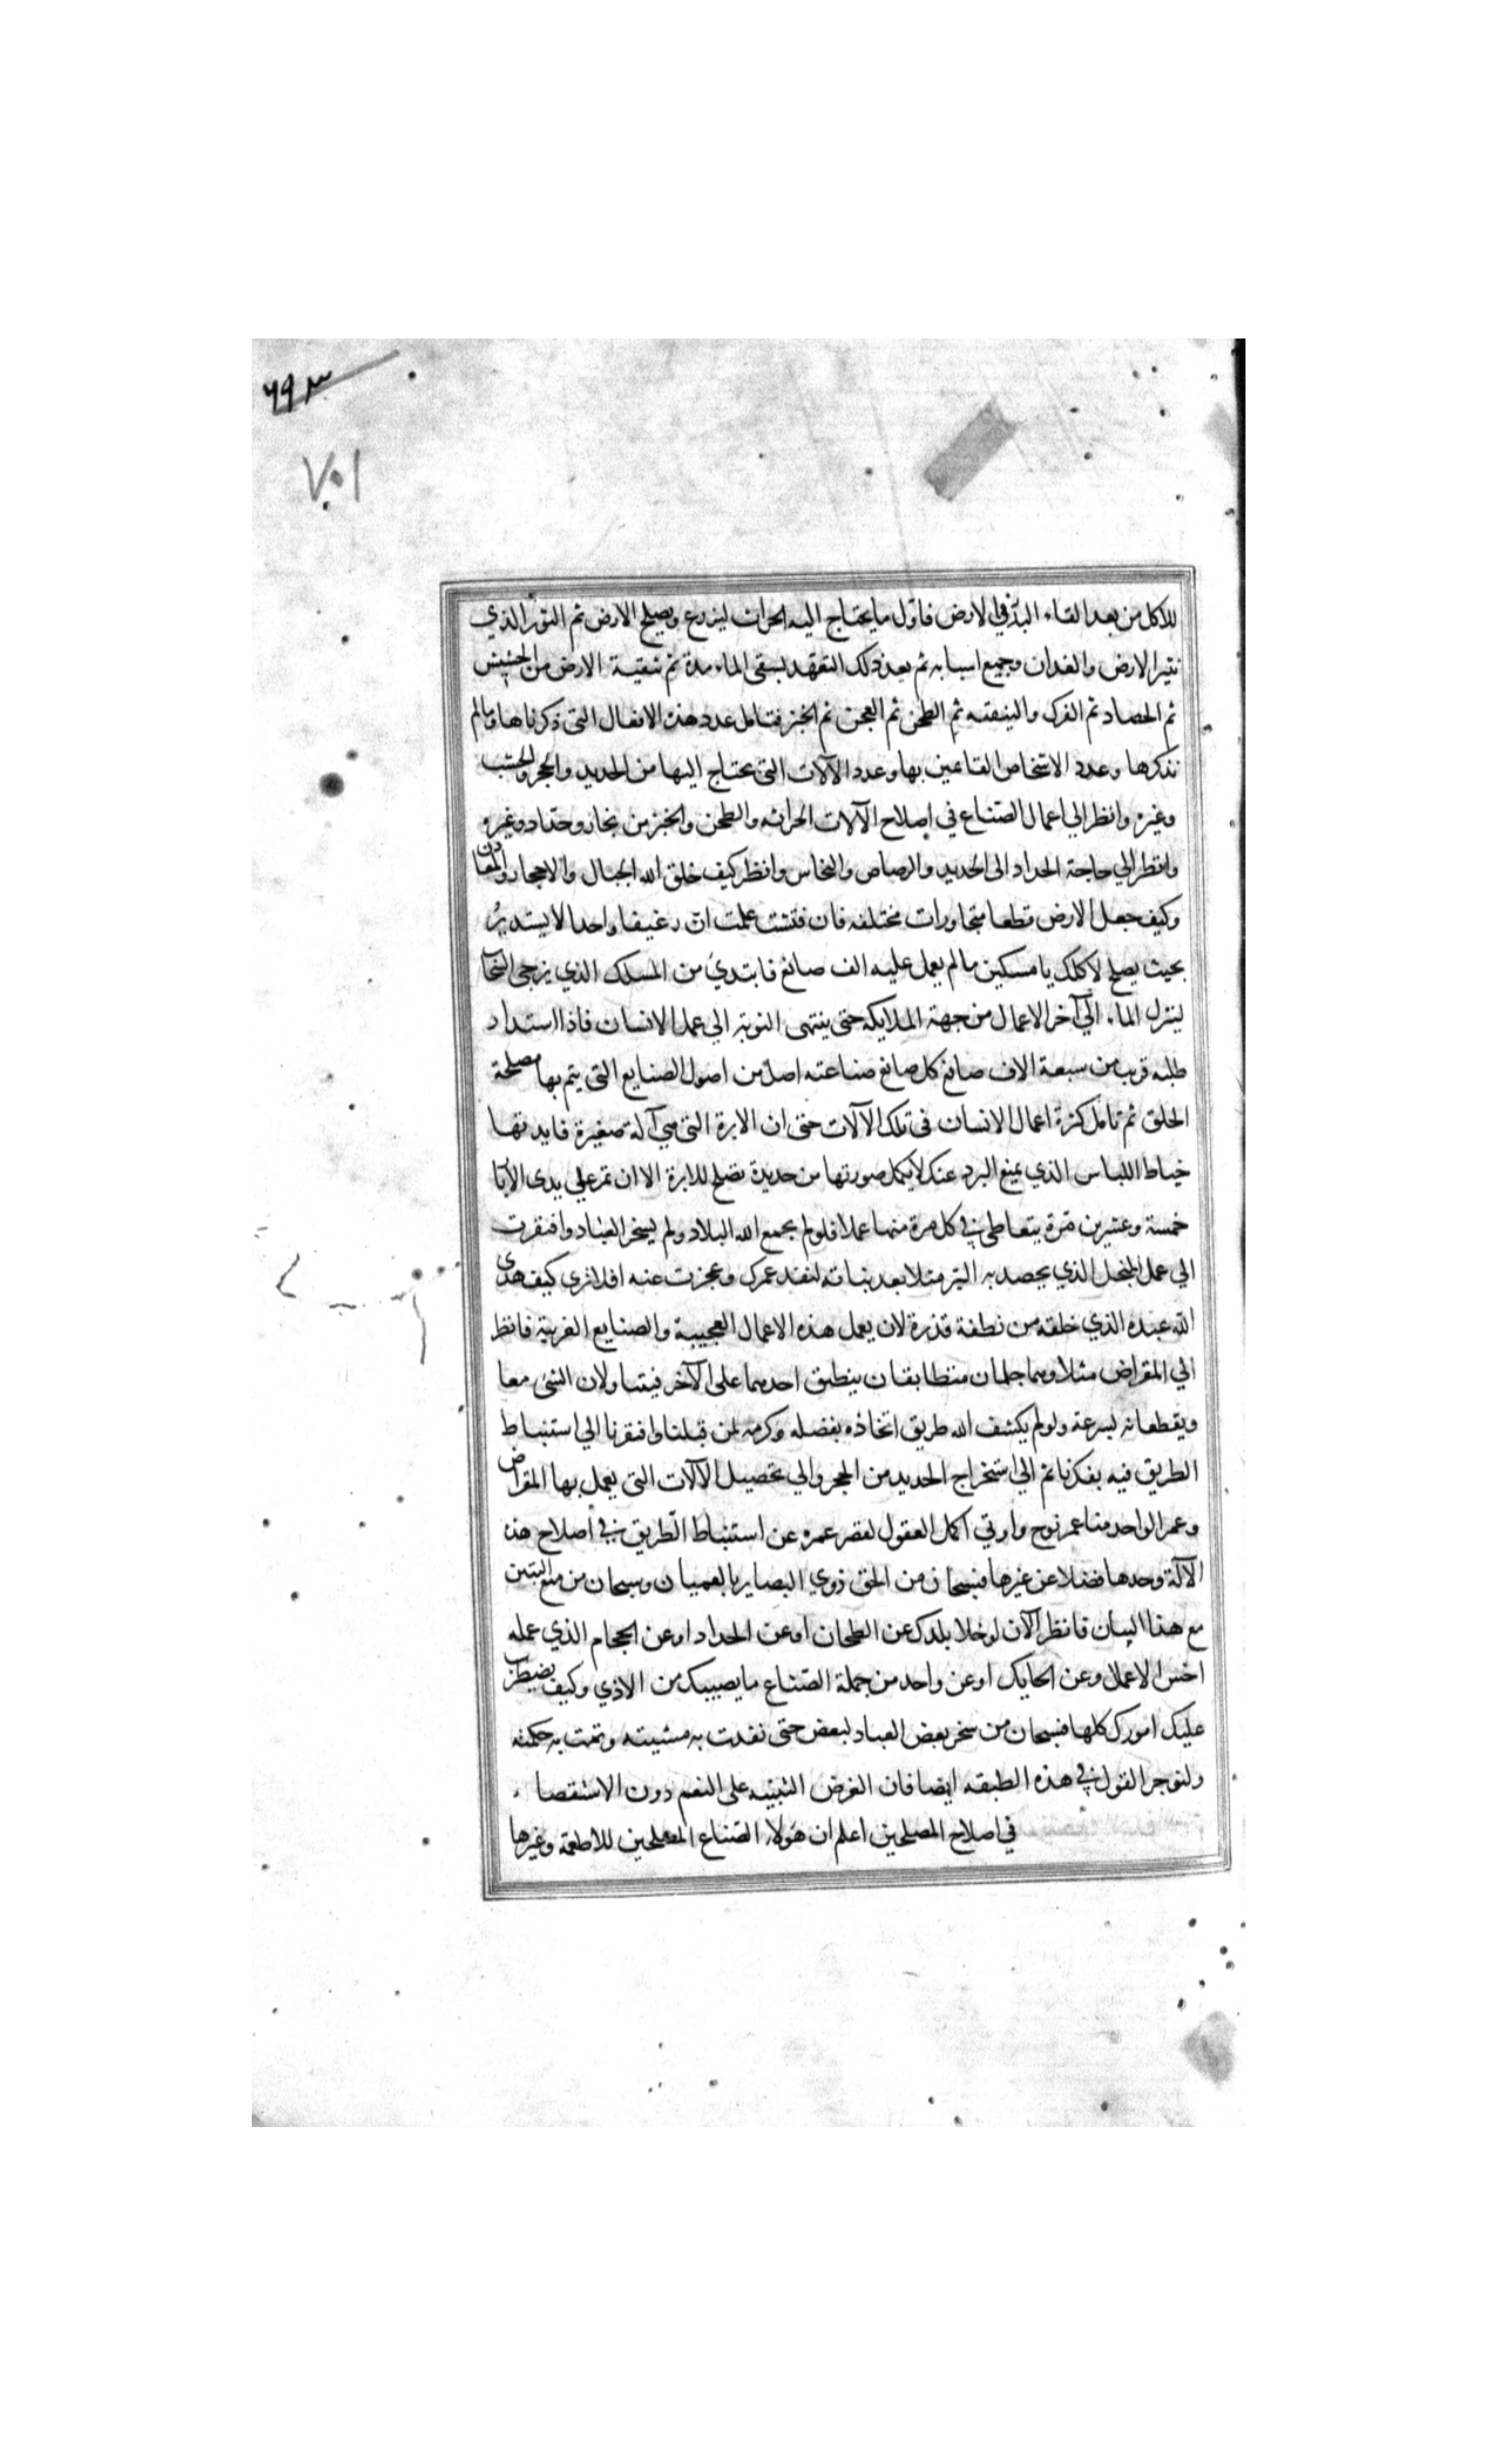 ٦٩٣
٧٥١
للاكل من بعد القاء البذر في الارض فاول ما يحتاج اليه الحراث ليزرع ويصلح الارض ثم الثور الذي
يثير الارض والفدان وجميع اسبابه ثم بعد ذلك التعهد بسقي الماء مدة ثم تنقية الارض من الحشيش
ثم الحصاد ثم الفرك والتنقيه ثم الطحن ثم العجن ثم الخبز فتامل عدد هذه الافعال التي ذكرناها وما لم
نذكرها وعدد الاشخاص القائمين بها وعدد الآلات التي يحتاج اليها من الحديد والحجر والخشب
وغيره وانظر الي اعمال الصناع في اصلاح الآلات الحراثه والطحن والخبز من نجار وحداد وغيره
وانظر الي حاجة الحداد الى الحديد والرصاص والنحاس وانظر كيف خلق الله الجبال والاحجار والمعادن
وكيف جعل الارض قطعا متجاورات مختلفه فان فتشت علمت ان رغيفا واحدا لا يستدير
بحيث يصلح لاكلك يا مسكين ما لم يعمل عليه الف صانع فابتدئ من المسلك الذي يزجي السحاب
لينزل الماء الي آخر الاعمال من جهة الملايكه حتى ينتهى النوبة الي عمل الانسان فاذا استدار
طلبه قريب من سبعة الاف صانع كل صانع صناعته اصل من اصول الصنايع التي يتم بها مصلحة
الخلق ثم تامل كثرة اعمال الانسان في تلك الآلات حتى ان الابرة التي هي آلة صغيرة فايدتها
خياط اللباس الذي يمنع البرد عنك لا يكمل صورتها من حديدة تصلح للابرة الا ان تمر علي يدى الابار
خمسة وعشرين مرة يتعاطى في كل مرة منها عملا فلو لم يجمع الله البلاد ولم يسخر العباد وافتقرت
الي عمل المنجل الذي يحصد به البر مثلا بعد نباته لنفد عمرك وعجزت عنه افلا ترى كيف هدى
الله عبده الذي خلقه من نطفة قذرة لان يعمل هذه الاعمال العجيبة والصنايع الغريبة فانظر
الي المقراض مثلا وهما جلمان متطابقان ينطبق احدهما على الآخر فيتناولان الشئ معا
ويقطعانه بسرعة ولو لم يكشف الله طريق اتخاذه بفضله وكرمه لمن قبلنا وافتقرنا الي استنباط
الطريق فيه بفكرنا ثم الي استخراج الحديد من الحجر والي تحصيل الآلات التي يعمل بها المقراض
وعمر الواحد منا عمر نوح واوتي اكمل العقول لقصر عمره عن استنباط الطريق في اصلاح هذه
الآلة وحدها فضلا عن غيرها فسبحان من الحق ذوي البصاير بالعميان وسبحان من منع التبين
مع هذا البيان فانظر الآن لو خلا بلدك عن الطحان او عن الحداد او عن الحجام الذي عمله
اخس الاعمال وعن الحايك او عن واحد من جملة الصناع ما يصيبك من الاذي وكيف يضطرب
عليك امورك كلها فسبحان من سخر بعض العباد لبعض حتى نفدت به مشيته وتمت به حكمته
ولنوجز القول في هذه الطبقه ايضا فان الغرض التنبيه على النعم دون الاستقصاء
في اصلاح المصلحين اعلم ان هؤلاء الصناع المصلحين للاطعمة وغيرها